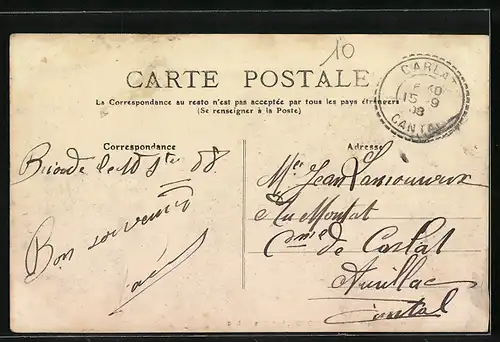 10
CARTE POSTALE
La Correspondance au resto n'est pas acceptée par tous les pays étrangers
(Se renseigner à la Poste)
CARLAT
15 - 9
08
CANTAL
Correspondance
Adresse
Brioude le 10 9bre 08
Bon souvenir
Mr Jean Lamouroux
au Montat
Cme de Carlat
Aurillac
Cantal